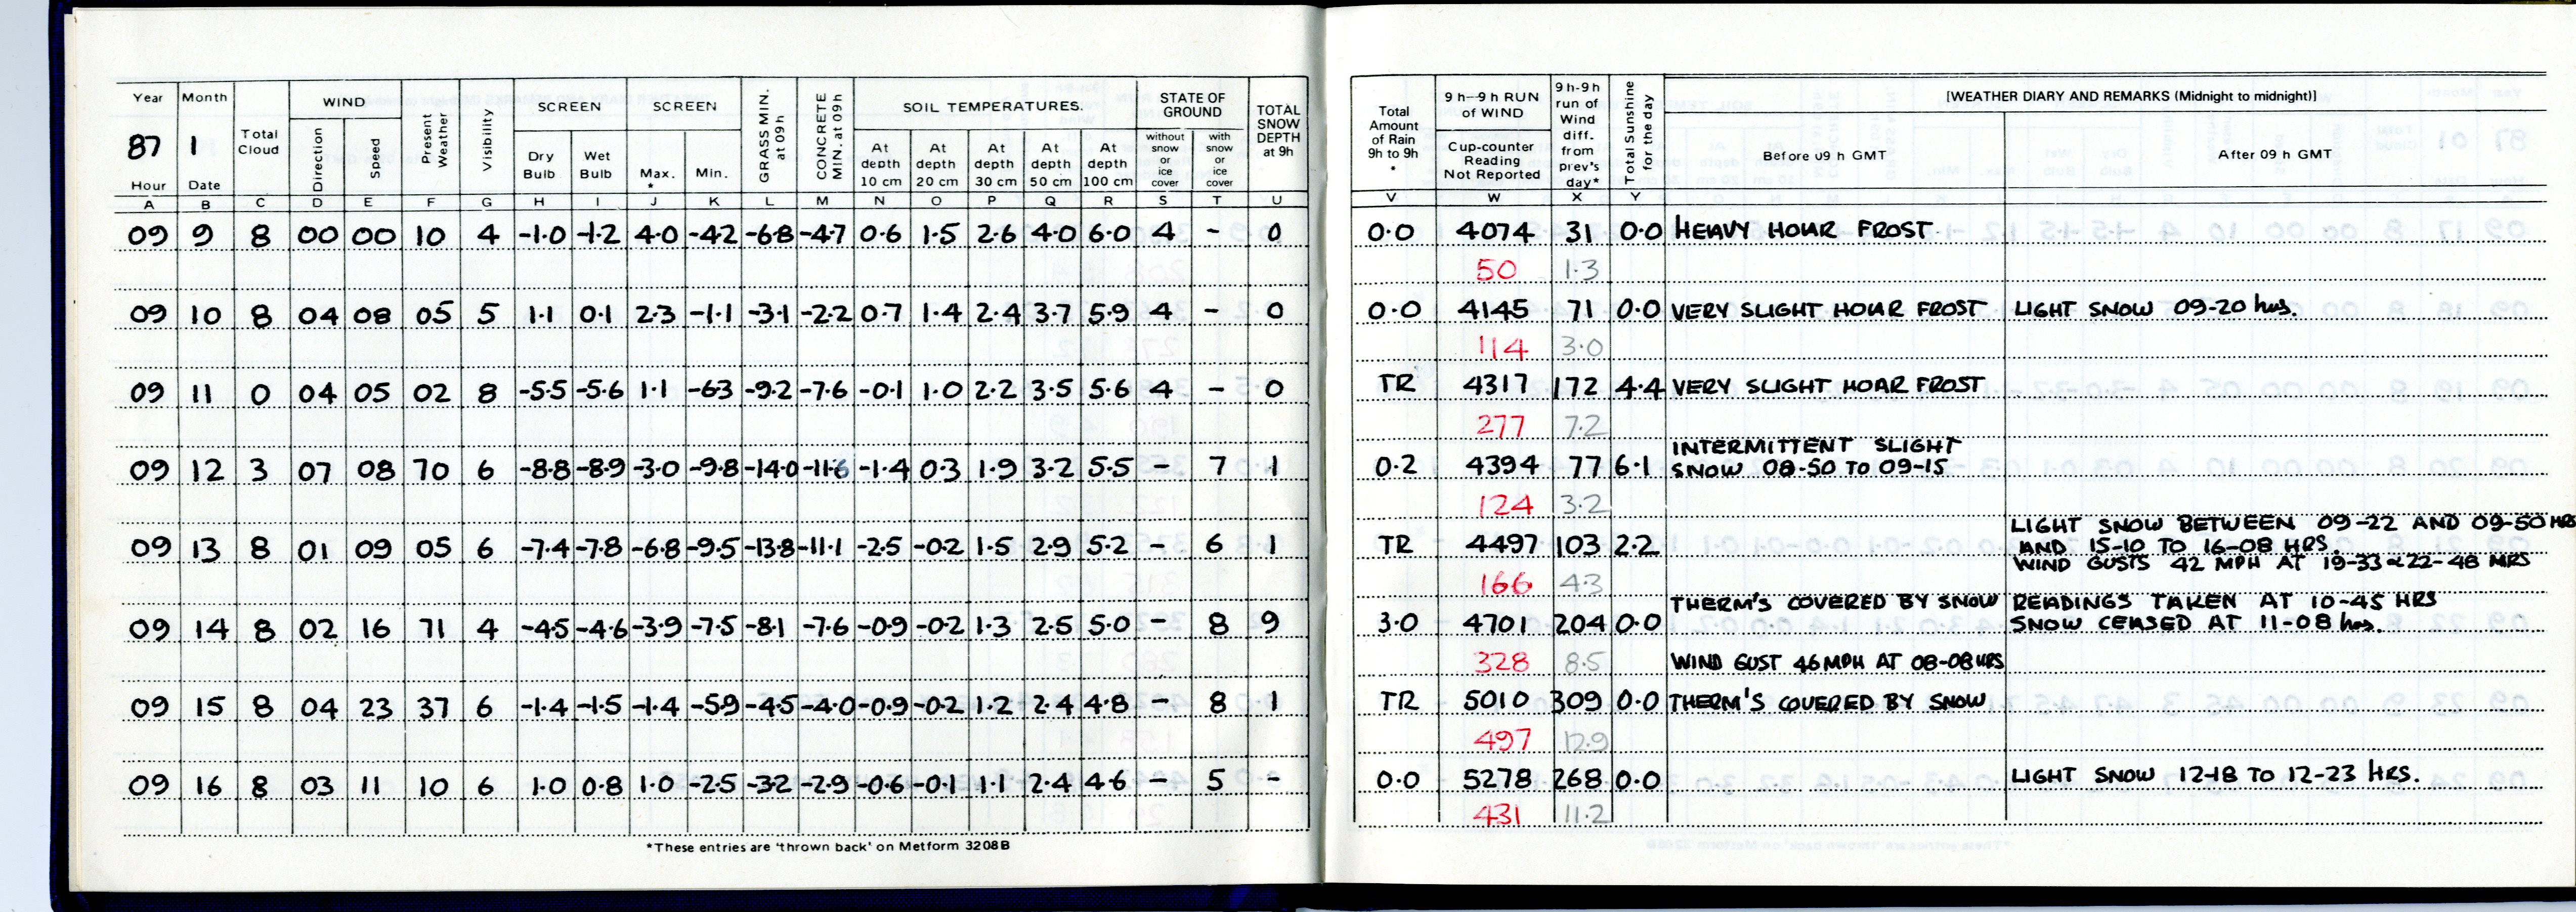 Year Month WIND SCREEN SCREEN GRASS MIN. at 09h CONCRETE MIN. at 09h SOIL TEMPERATURES. STATE OF GROUND TOTAL SNOW DEPTH at 9h
87 1 Total Cloud Direction Speed Present Weather Visibility Dry Bulb Wet Bulb Max. * Min. At depth 10 cm At depth 20 cm At depth 30 cm At depth 50 cm At depth 100 cm without snow or ice cover with snow or ice cover
Hour Date
A B C D E F G H I J K L M N O P Q R S T U
09 9 8 00 00 10 4 -1.0 -1.2 4.0 -4.2 -6.8 -4.7 0.6 1.5 2.6 4.0 6.0 4 - 0
09 10 8 04 08 05 5 1.1 0.1 2.3 -1.1 -3.1 -2.2 0.7 1.4 2.4 3.7 5.9 4 - 0
09 11 0 04 05 02 8 -5.5 -5.6 1.1 -6.3 -9.2 -7.6 -0.1 1.0 2.2 3.5 5.6 4 - 0
09 12 3 07 08 70 6 -8.8 -8.9 -3.0 -9.8 -14.0 -11.6 -1.4 0.3 1.9 3.2 5.5 - 7 1
09 13 8 01 09 05 6 -7.4 -7.8 -6.8 -9.5 -13.8 -11.1 -2.5 -0.2 1.5 2.9 5.2 - 6 1
09 14 8 02 16 71 4 -4.5 -4.6 -3.9 -7.5 -8.1 -7.6 -0.9 -0.2 1.3 2.5 5.0 - 8 9
09 15 8 04 23 37 6 -1.4 -1.5 -1.4 -5.9 -4.5 -4.0 -0.9 -0.2 1.2 2.4 4.8 - 8 1
09 16 8 03 11 10 6 1.0 0.8 1.0 -2.5 -3.2 -2.9 -0.6 -0.1 1.1 2.4 4.6 - 5 -
*These entries are 'thrown back' on Metform 3208B
Total Amount of Rain 9h to 9h * 9 h--9 h RUN of WIND Cup-counter Reading Not Reported 9 h-9 h run of Wind diff. from prev's day* Total Sunshine for the day [WEATHER DIARY AND REMARKS (Midnight to midnight)]
Before 09 h GMT After 09 h GMT
V W X Y
0.0 4074 31 0.0 HEAVY HOAR FROST
50 1.3
0.0 4145 71 0.0 VERY SLIGHT HOAR FROST LIGHT SNOW 09-20 hrs.
114 3.0
TR 4317 172 4.4 VERY SLIGHT HOAR FROST
277 7.2
INTERMITTENT SLIGHT
0.2 4394 77 6.1 SNOW 08-50 TO 09-15
124 3.2
LIGHT SNOW BETWEEN 09-22 AND 09-50 HRS
TR 4497 103 2.2 AND 15-10 TO 16-08 HRS.
WIND GUSTS 42 MPH AT 19-33 & 22-48 HRS
166 4.3
THERM'S COVERED BY SNOW READINGS TAKEN AT 10-45 HRS
3.0 4701 204 0.0 SNOW CEASED AT 11-08 hrs.
328 8.5 WIND GUST 46 MPH AT 08-08 HRS
TR 5010 309 0.0 THERM'S COVERED BY SNOW
497 12.9
0.0 5278 268 0.0 LIGHT SNOW 12-18 TO 12-23 HRS.
431 11.2